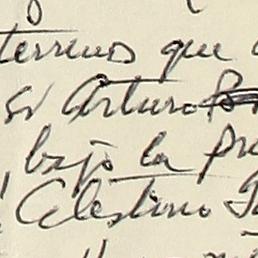 terrenos que
si Arturo
bajo la pr
Celestino